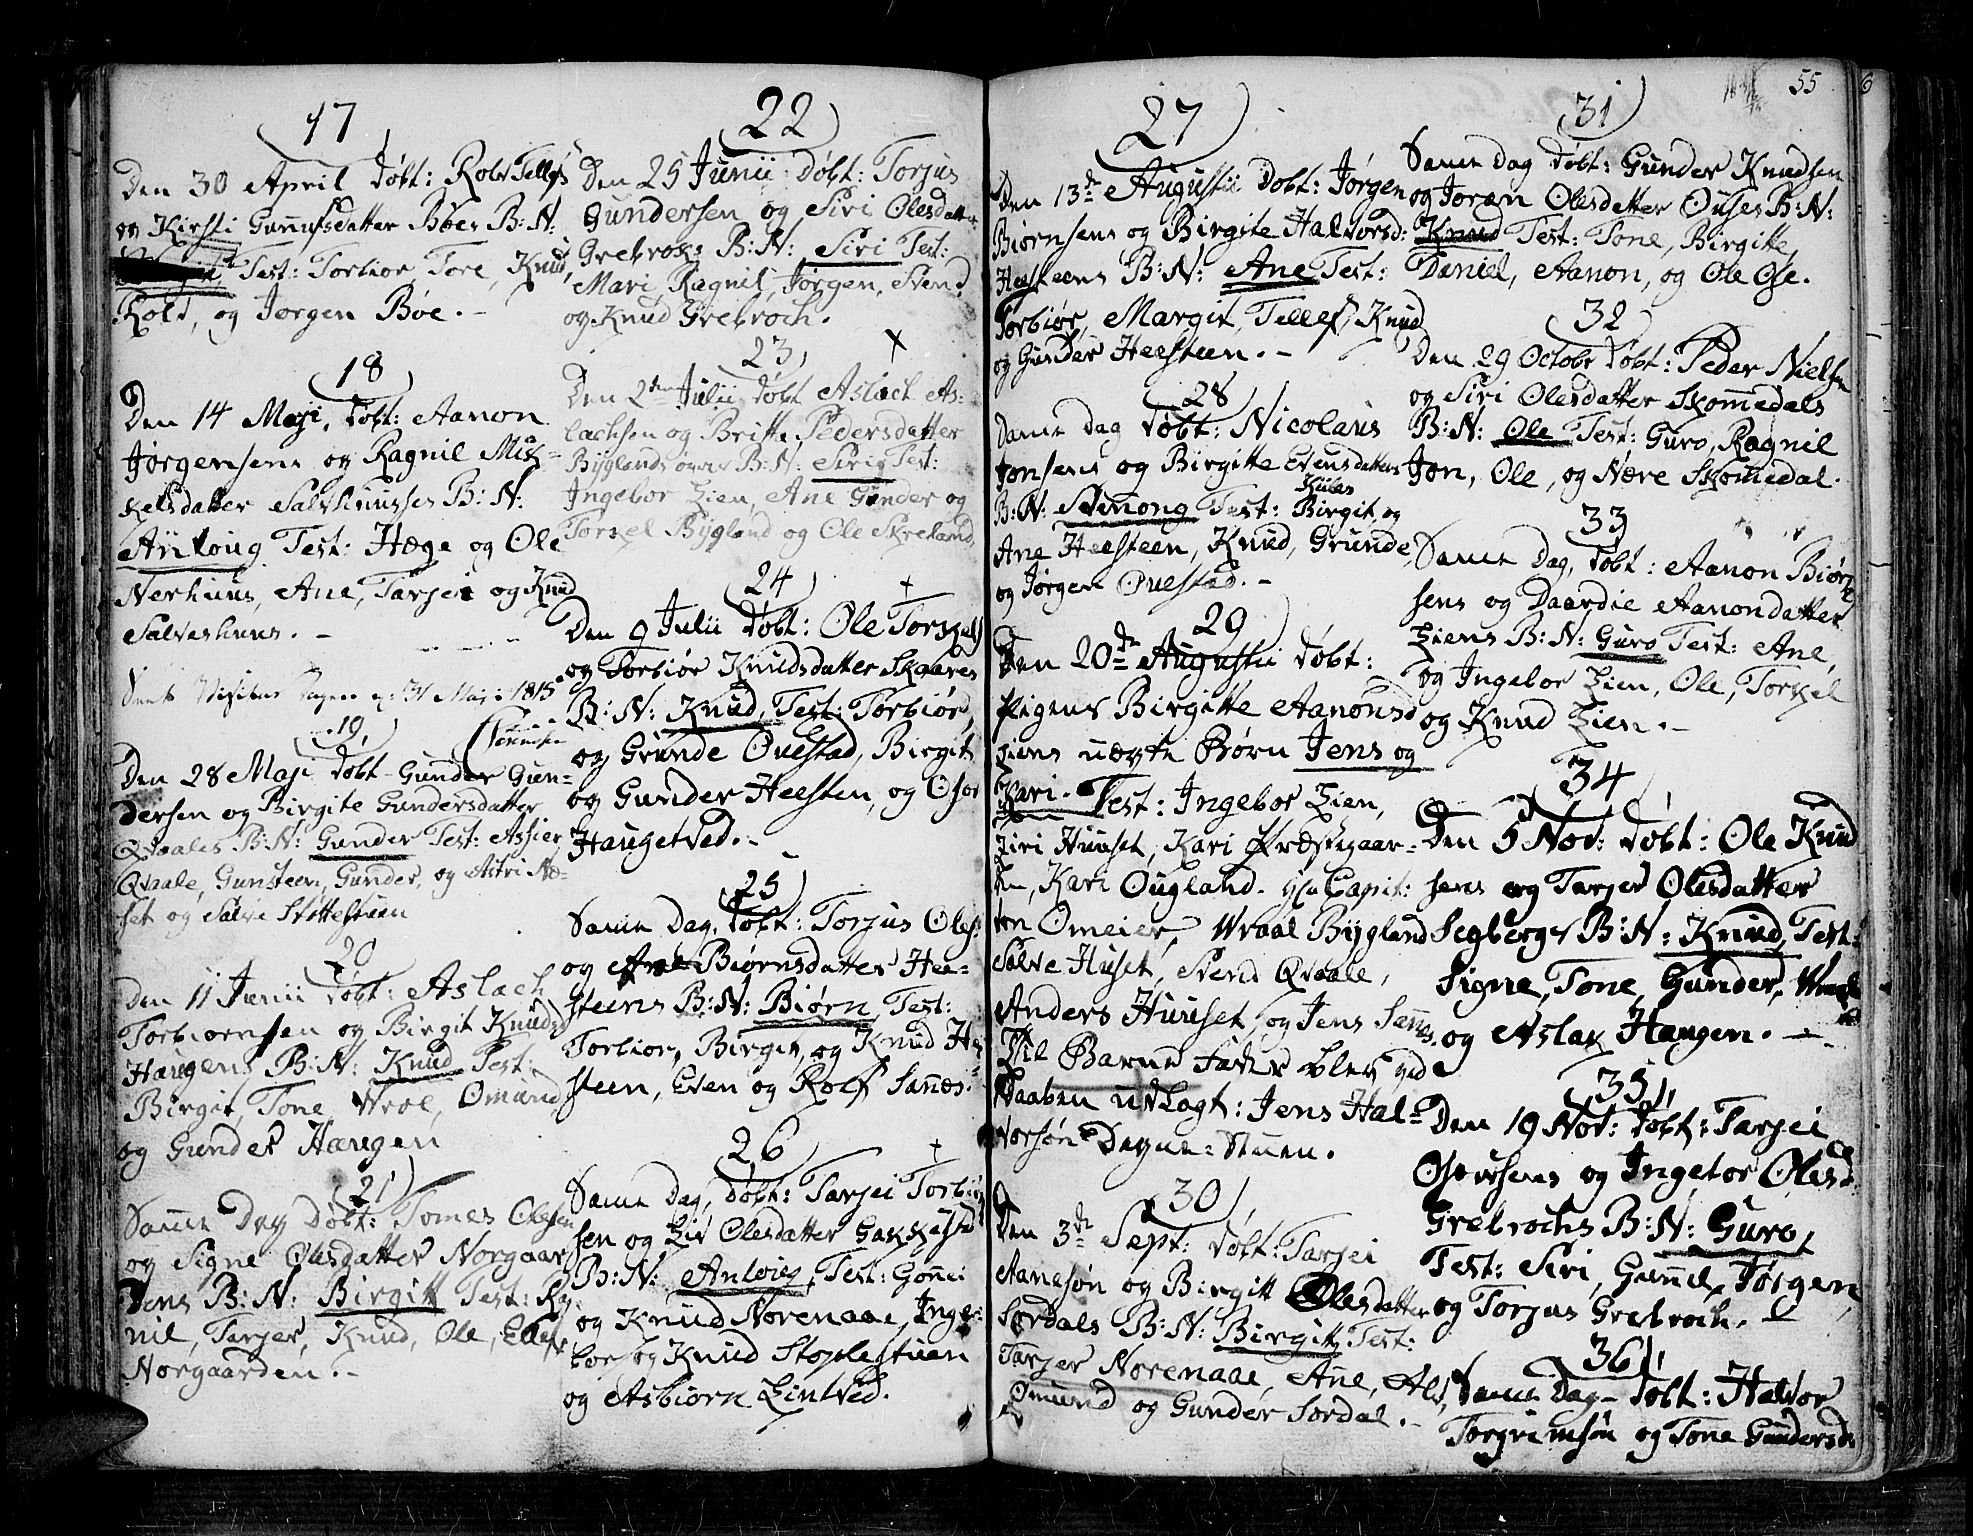 17
Den 30 April døbt: Rolv Tellefs
og Kirsti Gunnufsdatter Bøes B: N:
Test: Torbior, Tore, Knud,
Rolv, og Jørgen Bøe. -
18
Den 14 Maji, døbt: Aanon
Jørgensens og Ragnil Mik-
kelsdatter Salvhuusses B: N:
Anloug Test: Hæge og Ole
Nerhuus, Ane, Tarjei og Knud
Salveshuus. -
Visitas Dagen 31 Maji 1815
19
Den 28 Maji døbt Gunder Gun-
dersen og Birgite Gundersdatter
Qvales B: N: Gunder Test: Asbier
Qvaale, Gunsteen, Gunder, og Astri Næ-
set og Salve Støttestuen
20
Den 11 Junii døbt: Aslach
Torbiørnsen og Birgit Knudsd
Haugens B: N: Knud Test:
Birgit, Tone, Wroe, Omund
og Gunder Haugen
21
Samme Dag døbt: Tomes Olesen
og Signe Olesdatter Norgaar
dens B: N: Birgitt Test: Rag
nil, Tarjer, Knud, Ole, Ellef
Norgaarden. -
22
Den 25 Junii døbt: Torjus
Gundersen og Siri Olesdatter
Grebroks B: N: Siri Test:
Mari, Ragnil, Jørgen, Svend
og Knud Grebroch.
23
Den 2den Julii døbt Aslach As-
lachsen og Britte Pedersdatter
Byglands B: N: Siri Test:
Ingebor Lien, Ane Gunder og
Torkel Bygland og Ole Skreland
24
Den 9 Julii døbt: Ole Torkels
og Torbiør Knudsdatter Skaares
B: N: Knud, Test: Torbiør,
og Grunde Ouestad, Birgit
og Gunder Heesteen, og Osor
Haugetved. -
25
Samme Dag, døbt: Torjus Oles:
og Ane Biørnsdatter Hee-
steens B: N: Biørn, Test:
Torbior, Birgit, og Knud He
steen, Even og Rolf Sannes.
26
Samme Dag, døbt: Tarjei Torbiøn
sen og Liv Olesdatter
B: N: Anlaug, Test: Gonni
og Knud Norenaae, Inge-
bor, og Knud Stoplestuen
og Asbiørn Lintved.
27
Den 13de Augustii døbt: Jørgen
Biørnsens og Birgite Halvorsd:
Heesteens B: N: Ane Test:
Torbiør, Margit, Tellef, Knud
og Gunder Heesteen. -
28
Samme Dag døbt: Nicolaus
Jonsens og Birgitte Evensdatters
Kiiles
B: N: Test: Birgit og
Ane Heesteen, Knud, Grunde,
og Jørgen Ouestad. -
29
Den 20de Augustii døbt:
Pigens Birgitte Aanonsd
Liens uægte Børn Jens og
Kari. Test: Ingebor Lien,
Siri Huuset, Kari Præstegaar-
den, Kari Ougland. Hr Capit:
ton Omeier, Wraal Bygland
Salve Huset, Svend Qvaale,
Anders Huuset, og Jens Sannes.
Til Barne Fader blev ved
Daaben udlagt: Jens Hal-
vorsøn Degne-Stuen.
30
Den 3de Sept: døbt: Tarjei
Aanesøn og Birgitt Olesdatter
Sordals B: N: Birgitt, Test:
Tarjer Norenaae, Ane, Als,
Omund og Gunder Sordal. -
55
31
Samme Dag døbt: Gunder Knudsen
og Joran Olesdatter Ouses B: N:
Knud Test: Tone, Birgitte,
Daniel, Aanon, og Ole Ose.
32
Den 29 Octobr døbt: Peder Nielsen
og Siri Olesdatter Skomedals
B: N: Ole Test: Guro, Ragnil
Jon, Ole, og Nære Skomedal.
33
Samme Dag, døbt: Aanon Biørn
sens og Daardie Aanondatter
Liens B: N: Guro Test: Ane,
og Ingebor Lien, Ole, Torkel
og Knud Lien. -
34
Den 5 Nov: døbt: Ole Knud
sens og Tarjer Olesdatter
Segbergs B: N: Knud, Test:
Signe, Tone, Gunder,
og Aslak Haugen. -
35
Den 19 Nov: døbt: Tarjei
Osuvsens og Ingebor Olesd:
Grebrochs B: N: Guro,
Test: Siri, Gunnil, Jørgen
og Torjus Grebroch. -
36
Samme Dag døbt: Halvor
Torgrimsøn og Tone Gundersd: